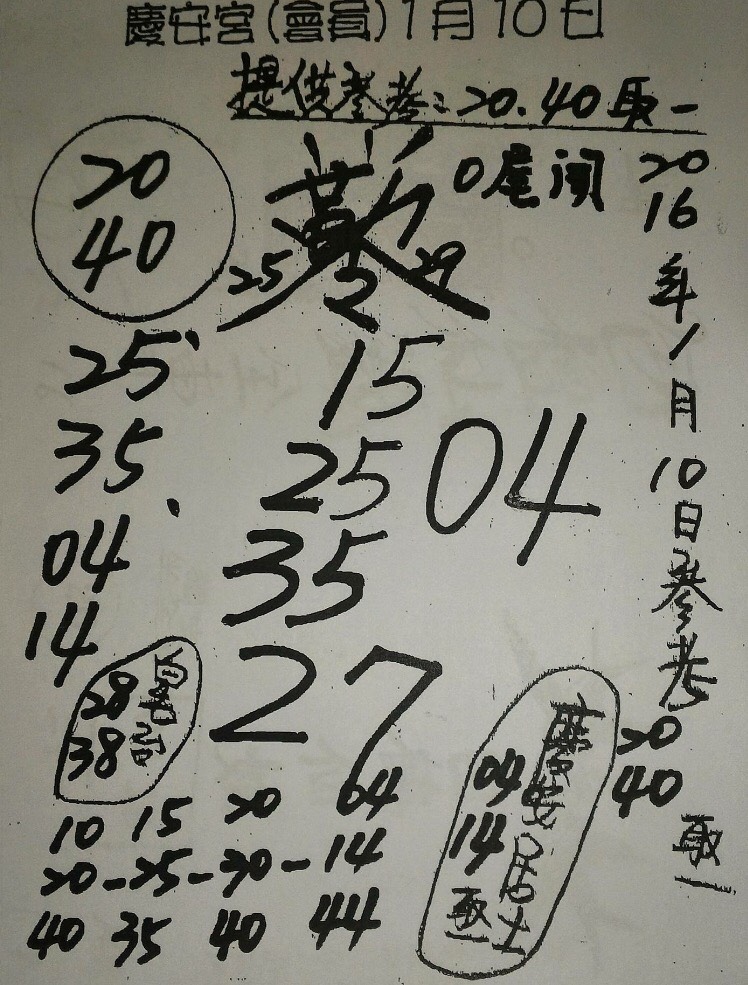 慶安宮(會員)1月10日
提供參考:20.40取一
20
40
0尾闖
25 29
2016年1月10日參考
20
40
取一
25
35
04
14
15
25
35
04
27
28
38
10 15 20 04
20-25-30-14
40 35 40 44
慶安居士
04
14
取一